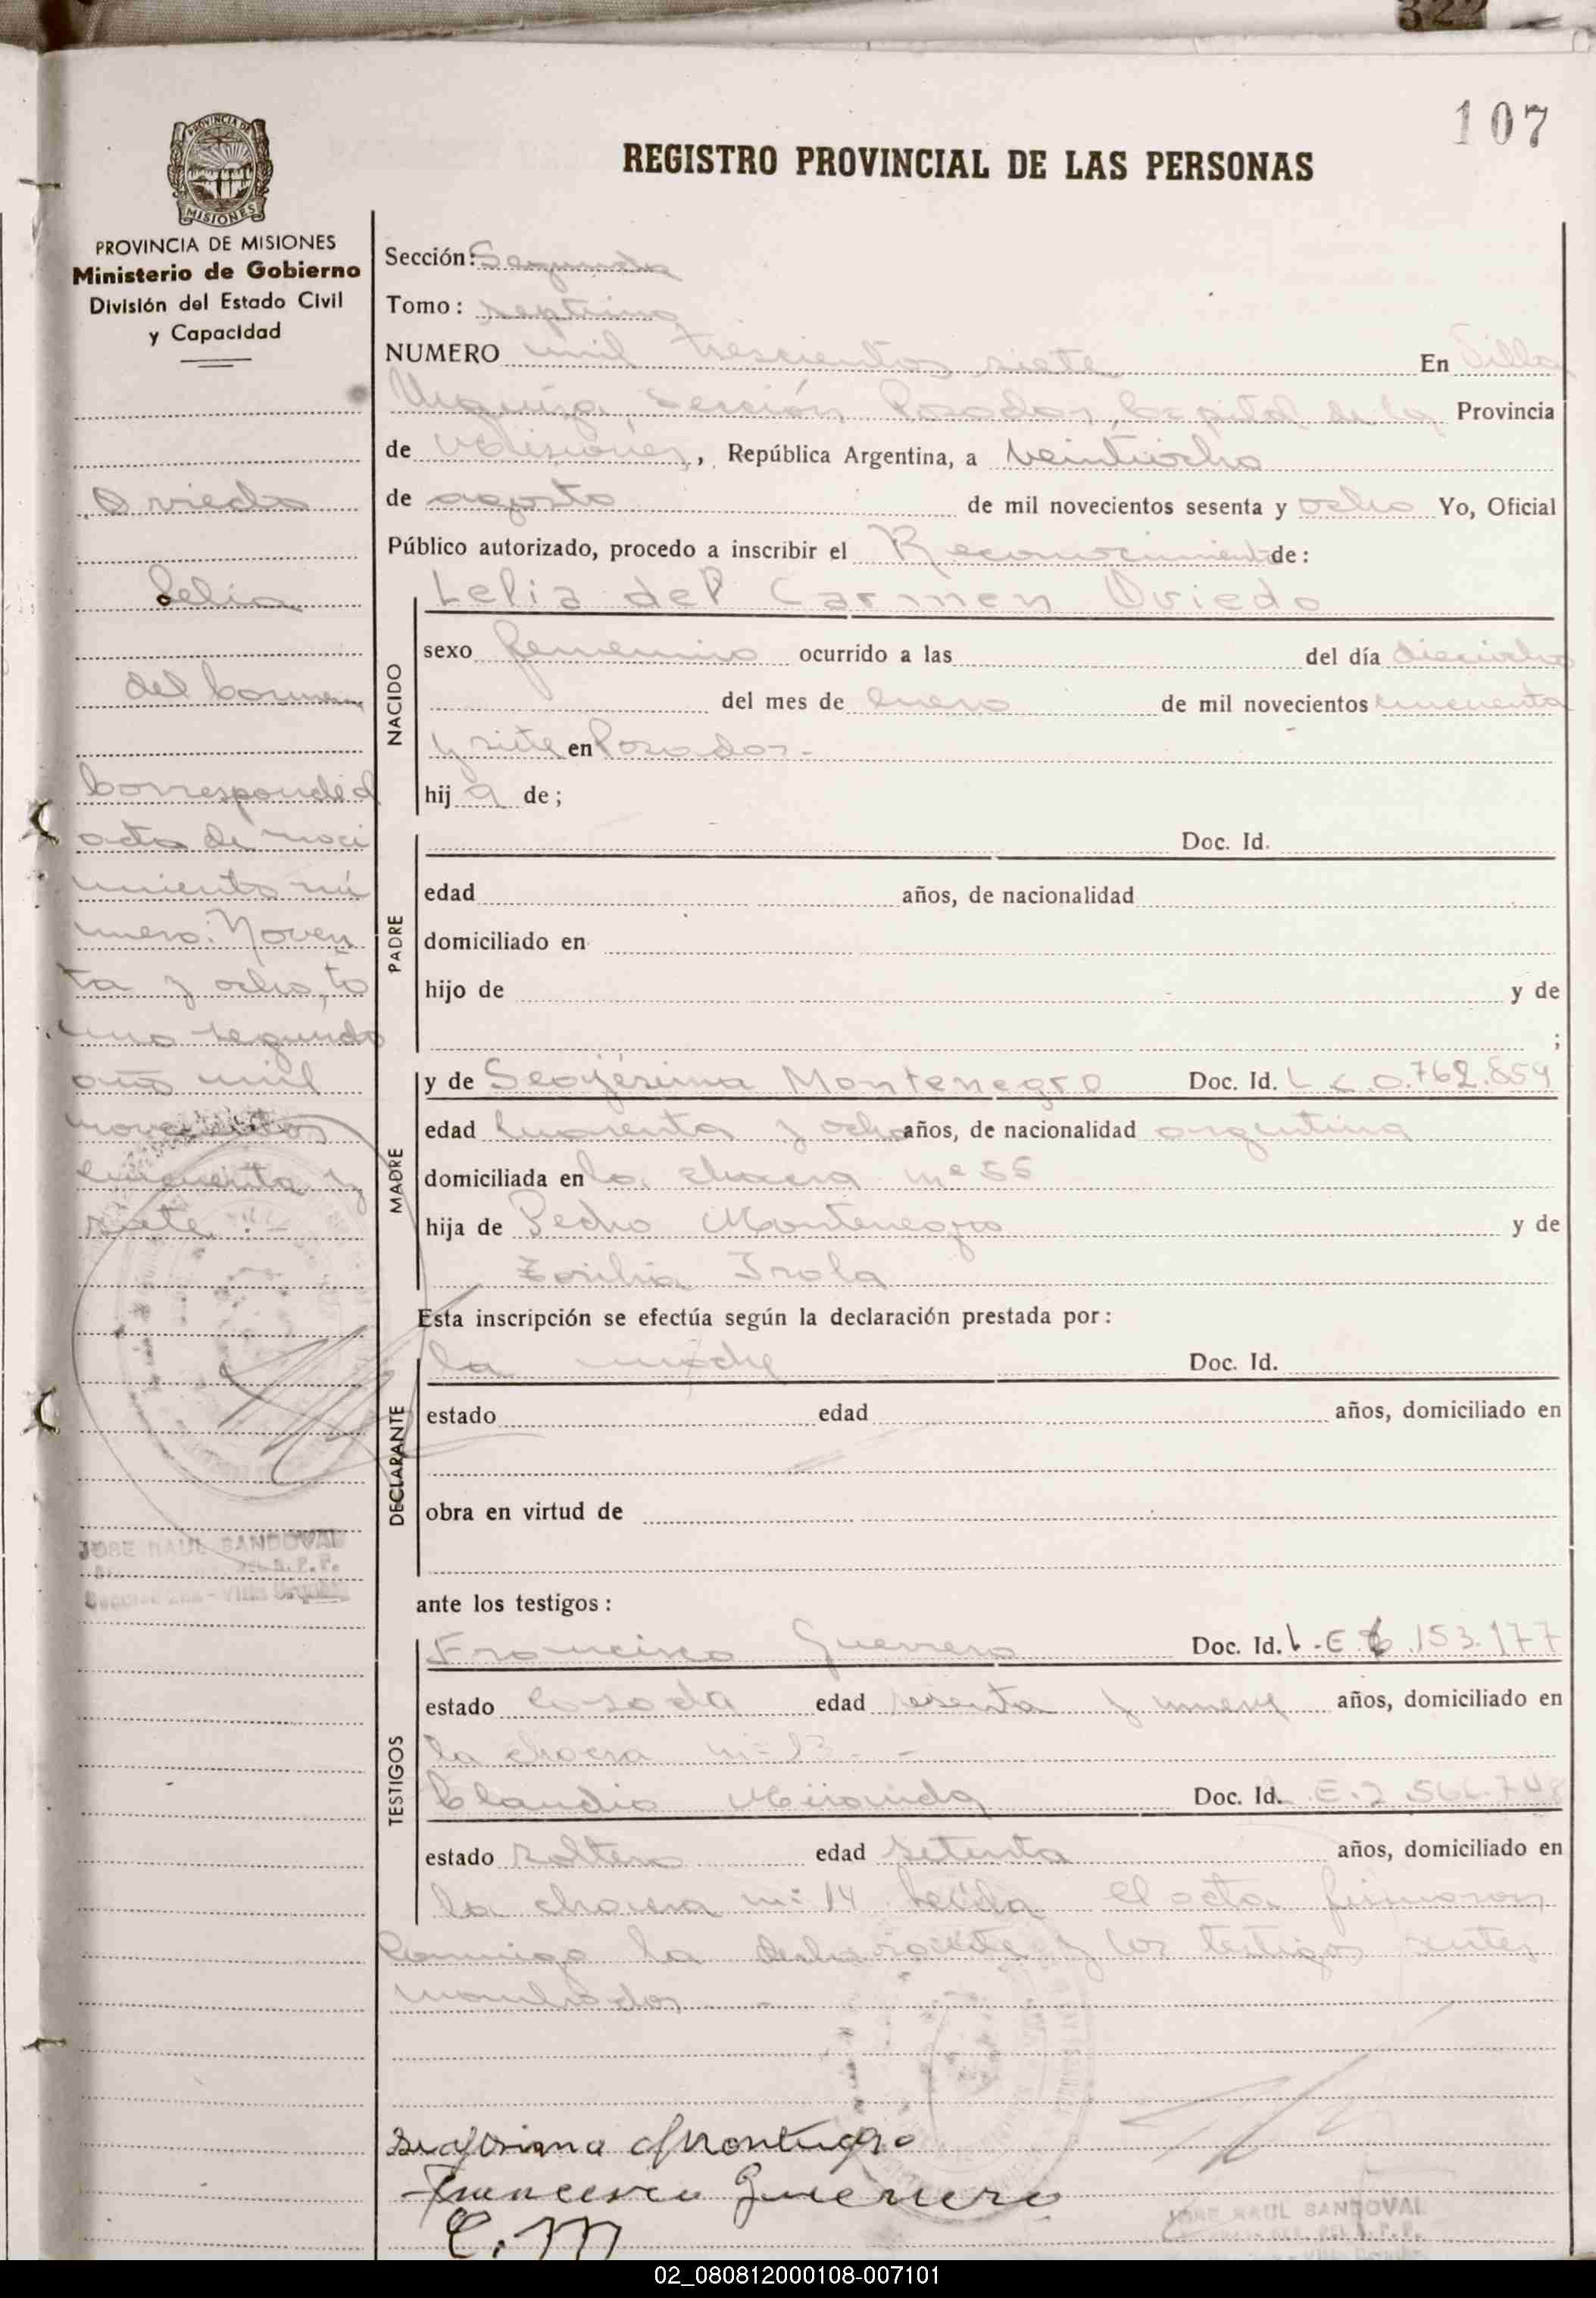 322
107
PROVINCIA DE
MISIONES
REGISTRO PROVINCIAL DE LAS PERSONAS
PROVINCIA DE MISIONES
Ministerio de Gobierno
División del Estado Civil
y Capacidad
Oviedo
Lelia
del Carmen
Corresponde al
acta de naci
miento nú
mero: Noven
ta y ocho, to
mo segundo
año mil
novecientos
cincuenta y
siete.-
JOSE RAUL SANDOVAL
DEL R. P. P.
Villa Urquiza
Sección: Segunda
Tomo: septimo
NUMERO mil trescientos siete En Villa
Urquiza Sección, Posadas, Capital de la Provincia
de Misiones, República Argentina, a veintiocho
de agosto de mil novecientos sesenta y ocho Yo, Oficial
Público autorizado, procedo a inscribir el Reconocimiento de:
NACIDO
Lelia del Carmen Oviedo
sexo femenino ocurrido a las del día dieciocho
del mes de enero de mil novecientos cincuenta
y siete en Posadas.-
hij a de;
PADRE
Doc. Id.
edad años, de nacionalidad
domiciliado en
hijo de y de
;
MADRE
y de Montenegro Doc. Id. L C 0.762.859
edad cuarenta y ocho años, de nacionalidad argentina
domiciliada en la chacra nº 55
hija de Pedro Montenegro y de
Irola
Esta inscripción se efectúa según la declaración prestada por:
DECLARANTE
la madre Doc. Id.
estado edad años, domiciliado en
obra en virtud de
ante los testigos:
TESTIGOS
Francisco Guerrero Doc. Id. L.E 153.177
estado casado edad sesenta y nueve años, domiciliado en
la chacra nº 13.-
Claudio Miranda Doc. Id. E.2.566.748
estado soltero edad setenta años, domiciliado en
la chacra nº 14 Leída el acta firmaron
conmigo la declarante y los testigos antes
nombrados
Montenegro
Francisco Guerrero
C. M
JOSE RAUL SANDOVAL
DEL R. P. P.
02_080812000108-007101